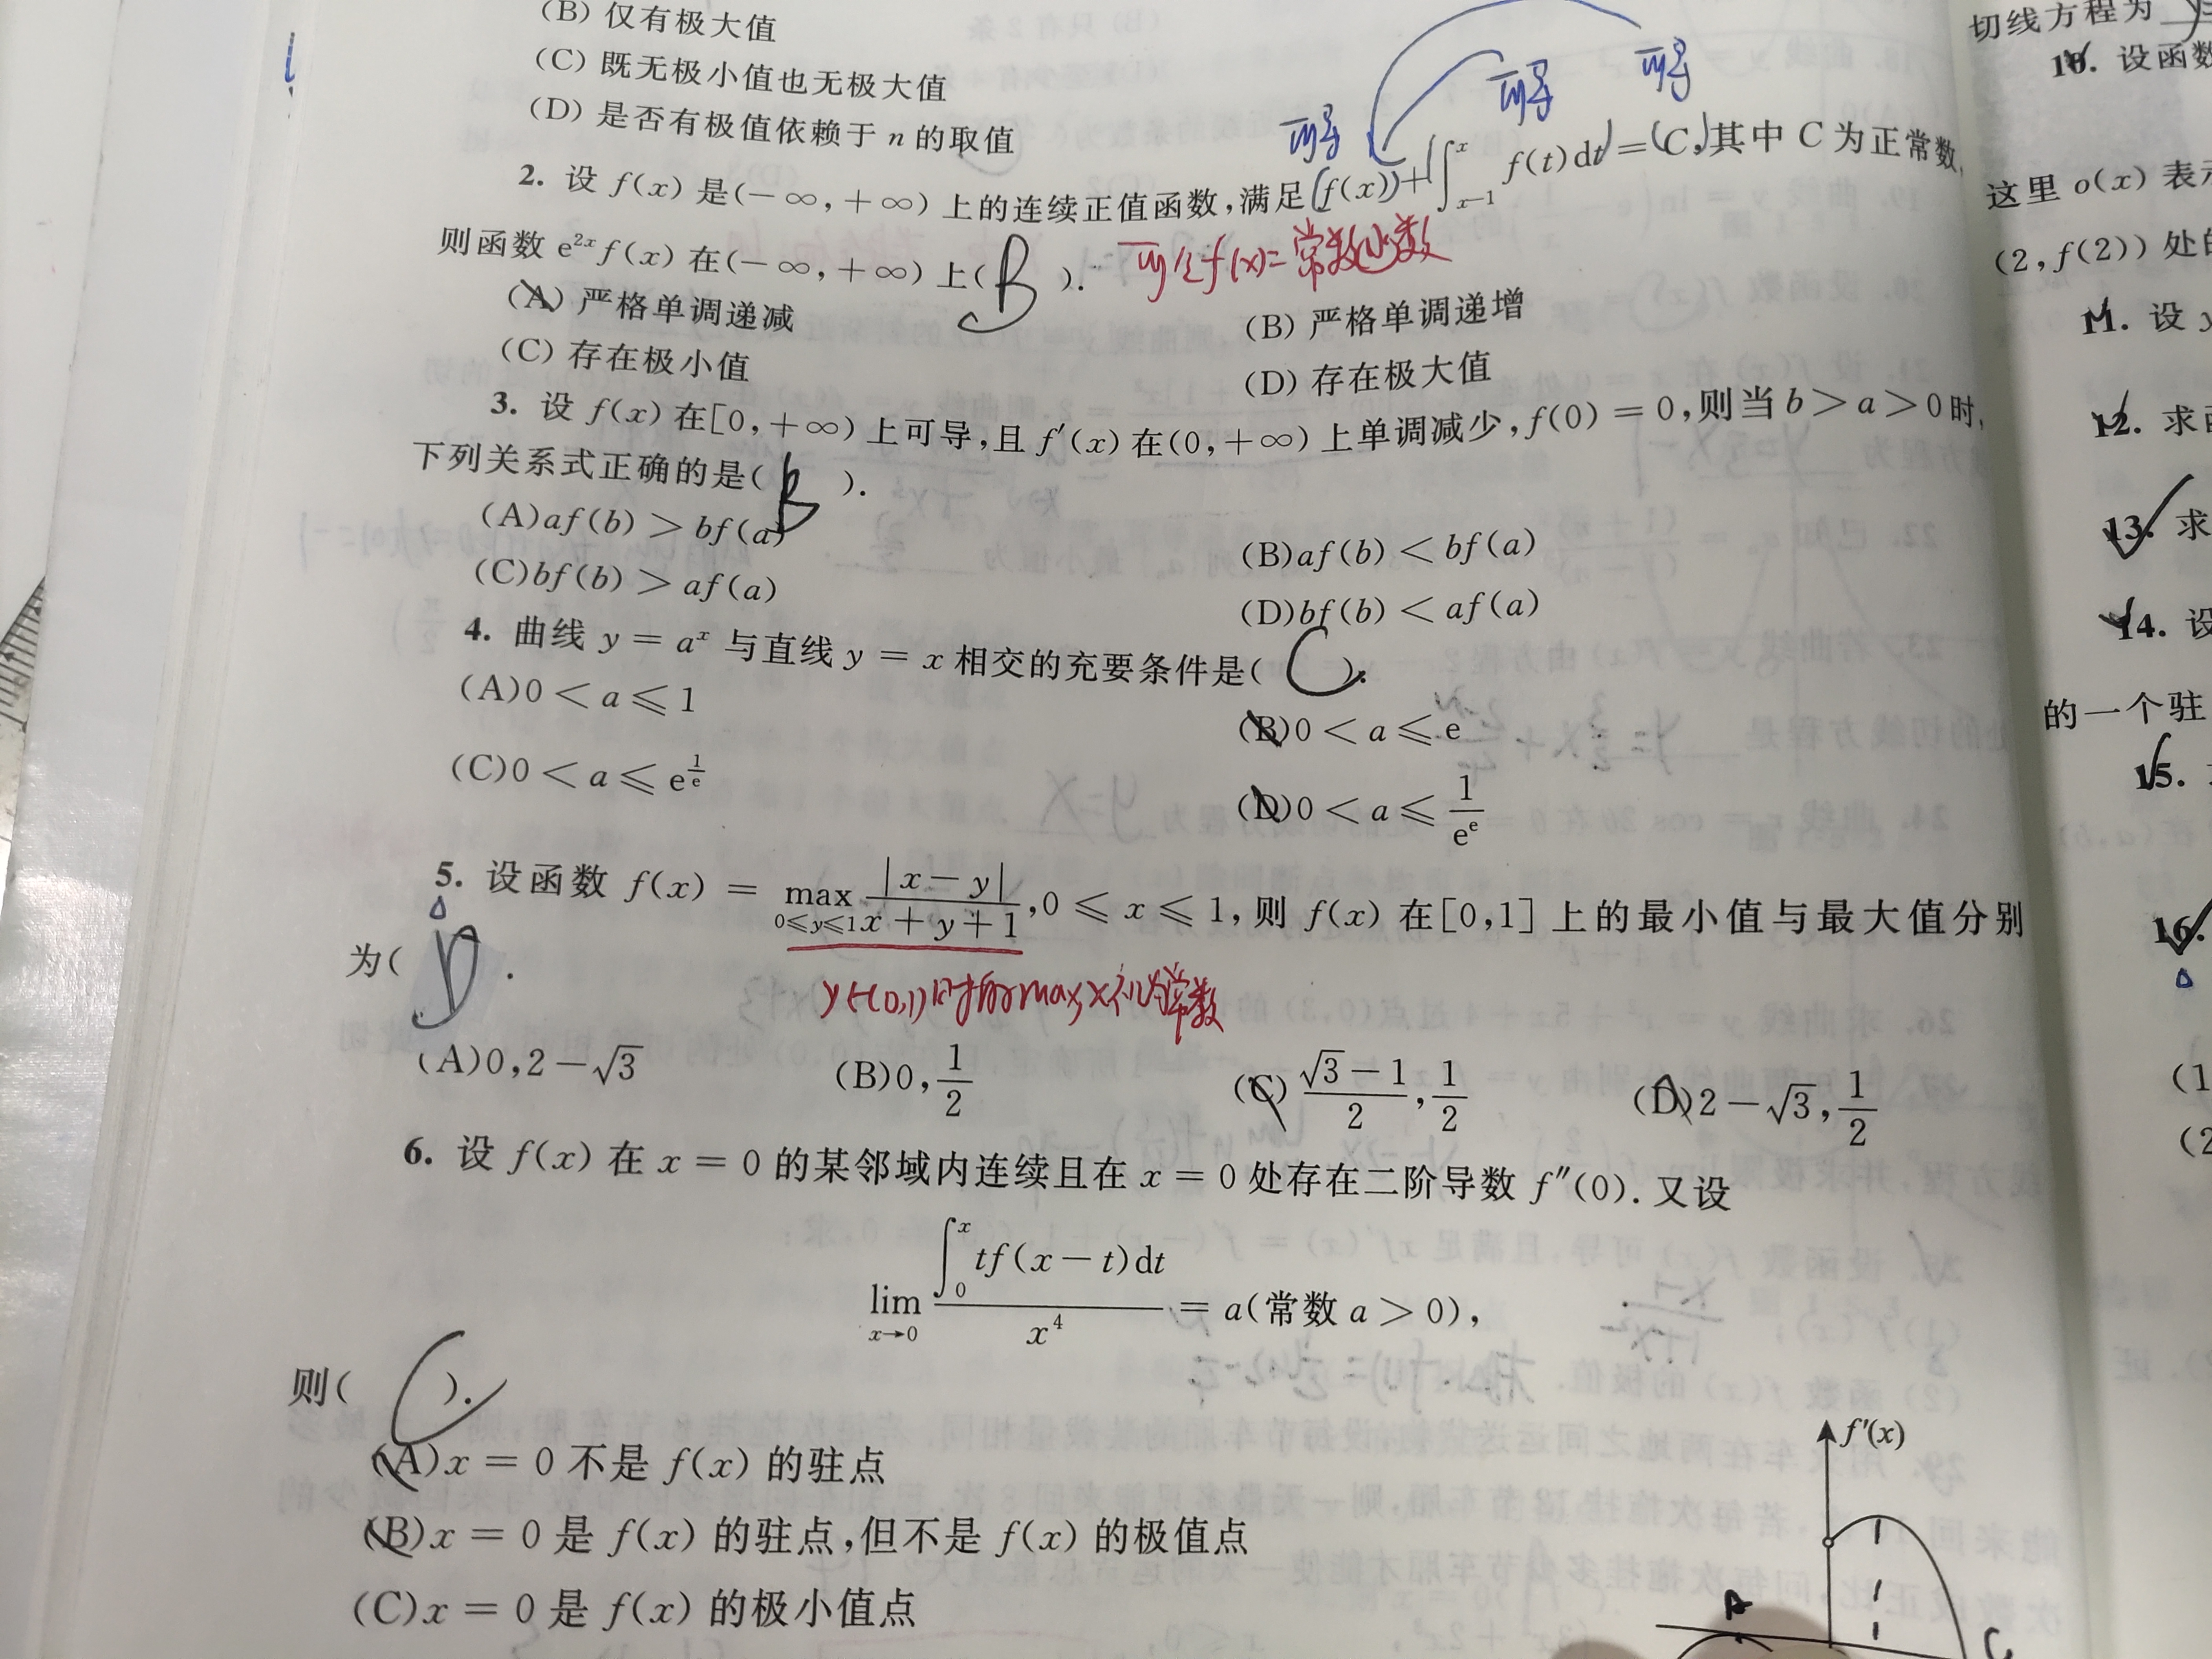 (B) 仅有极大值
(C) 既无极小值也无极大值
(D) 是否有极值依赖于 n 的取值
可导 可导 可导
2. 设 f(x) 是(-∞,+∞) 上的连续正值函数,满足 f(x)+∫_{x-1}^{x} f(t)dt = C,其中 C 为正常数,
则函数 e^{2x}f(x) 在(-∞,+∞) 上( B ).
(A) 严格单调递减
(B) 严格单调递增
(C) 存在极小值
(D) 存在极大值
3. 设 f(x) 在[0,+∞) 上可导,且 f′(x) 在(0,+∞) 上单调减少,f(0) = 0,则当 b > a > 0 时,
下列关系式正确的是( B ).
(A)af(b) > bf(a)
(B)af(b) < bf(a)
(C)bf(b) > af(a)
(D)bf(b) < af(a)
4. 曲线 y = a^x 与直线 y = x 相交的充要条件是( C ).
(A)0 < a ⩽ 1
(B)0 < a ⩽ e
(C)0 < a ⩽ e^{1/e}
(D)0 < a ⩽ 1/e^e
5. 设函数 f(x) = max_{0⩽y⩽1} |x-y|/(x+y+1),0 ⩽ x ⩽ 1,则 f(x) 在[0,1] 上的最小值与最大值分别
为( D .
(A)0,2-√3
(B)0,1/2
(C) (√3-1)/2,1/2
(D)2-√3,1/2
6. 设 f(x) 在 x = 0 的某邻域内连续且在 x = 0 处存在二阶导数 f″(0). 又设
lim_{x→0} ∫_0^x tf(x-t)dt / x^4 = a(常数 a > 0),
则( C ).
(A)x = 0 不是 f(x) 的驻点
(B)x = 0 是 f(x) 的驻点,但不是 f(x) 的极值点
(C)x = 0 是 f(x) 的极小值点
f′(x)
A
C
切线方程为
10. 设函数
这里 o(x) 表
(2,f(2)) 处
11. 设
12. 求
13. 求
14. 设
的一个驻
15.
16.
(1
(2